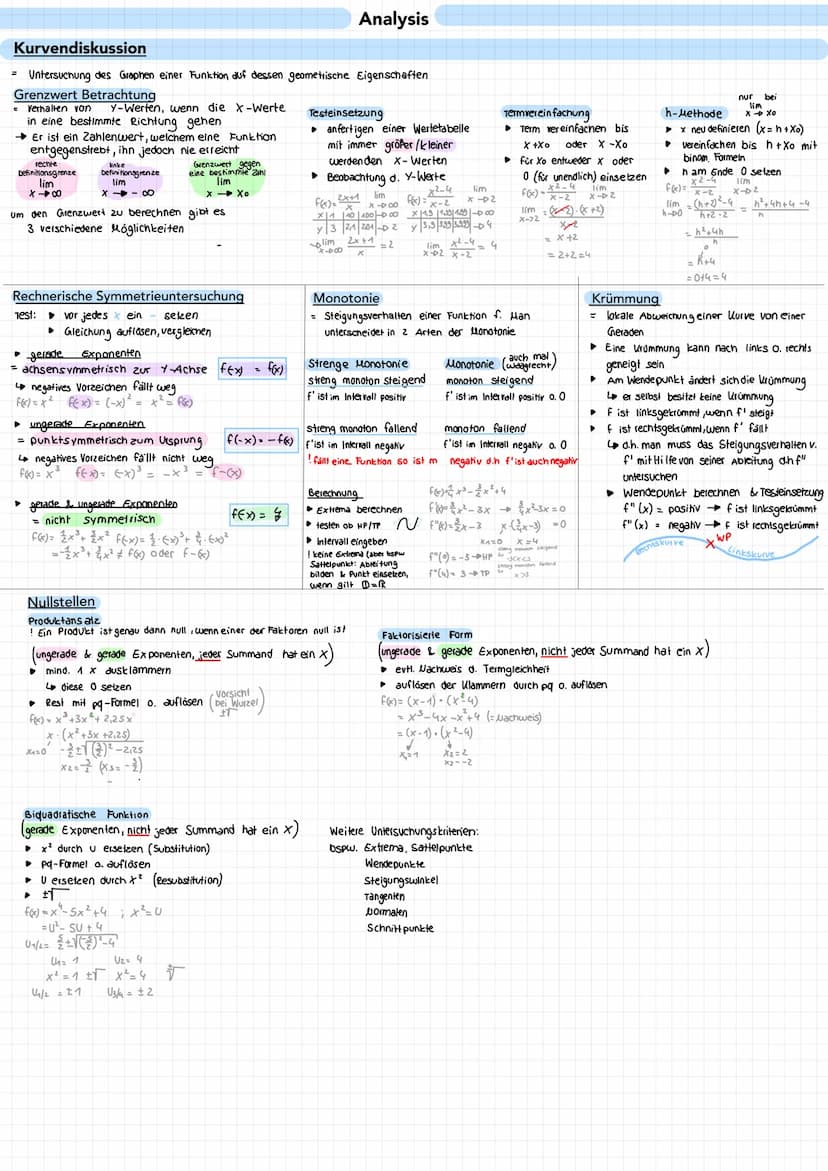 Analysis
Kurvendiskussion
= Untersuchung des Graphen einer Funktion auf dessen geometrische Eigenschaften
Grenzwert Betrachtung
= Verhalten von Y-Werten, wenn die X-Werte
in eine bestimmte Richtung gehen
→ Er ist ein Zahlenwert, welchem eine Funktion
entgegenstrebt, ihn jedoch nie erreicht
rechte Definitionsgrenze
lim
x → ∞
linke Definitionsgrenze
lim
x → - ∞
Grenzwert gegen eine bestimmte Zahl
lim
x → x₀
um den Grenzwert zu berechnen gibt es
3 verschiedene Möglichkeiten
Testeinsetzung
▸ anfertigen einer Wertetabelle
mit immer größer/kleiner
werdenden X-Werten
▸ Beobachtung d. Y-Werte
f(x)= (2x+1)/x lim x→∞
x | 1 | 10 | 100 →∞
y | 3 | 2,1 | 2,01 → 2
→ lim x→∞ (2x+1)/x = 2
f(x)= (x²-4)/(x-2) lim x→2
lim x→2 (x²-4)/(x-2) = 4
Termvereinfachung
▸ Term vereinfachen bis
x+x₀ oder x-x₀
▸ für x₀ entweder x oder
0 (für unendlich) einsetzen
f(x)= (x²-4)/(x-2) lim x→2
lim x→2 = (x-2)·(x+2)/x-2
= x+2
= 2+2=4
nur bei
lim
x→x₀
h-Methode
▸ x neu definieren (x=h+x₀)
▸ vereinfachen bis h+x₀ mit
binom. Formeln
▸ h am ende 0 setzen
f(x)= (x²-4)/(x-2) lim x→2
lim h→0 = ((h+2)²-4)/(h+2-2) = (h²+4h+4-4)/h
= (h²+4h)/h
= h+4
= 0+4=4
Rechnerische Symmetrieuntersuchung
Test: ▸ vor jedes x ein - setzen
▸ Gleichung auflösen, vergleichen
▸ gerade Exponenten
= achsensymmetrisch zur Y-Achse f(-x) = f(x)
↳ negatives Vorzeichen fällt weg
f(x)= x² f(-x) = (-x)² = x² = f(x)
▸ ungerade Exponenten
= punktsymmetrisch zum Usprung f(-x) = -f(x)
↳ negatives Vorzeichen fällt nicht weg
f(x)= x³ f(-x)= (-x)³ = -x³ = f-(x)
▸ gerade & ungerade Exponenten
= nicht symmetrisch
Monotonie
= Steigungsverhalten einer Funktion f. Man
unterscheidet in 2 Arten der Monotonie
Strenge Monotonie
streng monoton steigend
f' ist im Intervall positiv
streng monoton fallend
f' ist im Intervall negativ
Monotonie (auch mal waagrecht)
monoton steigend
f' ist im Intervall positiv o. 0
monoton fallend
f' ist im Intervall negativ o. 0
! fällt eine Funktion so ist m negativ d.h f' ist auch negativ
Berechnung
▸ Extrema berechnen
▸ testen ob HP/TP
▸ Intervall eingeben
! keine Extrema (aber bspw
Sattelpunkt: Ableitung
bilden & Punkt einsetzen,
wenn gilt D=ℝ
f(x)= ¼x³ - 3/2x² + 4
f'(x)= ¾x² - 3x → ¾x² - 3x = 0
f''(x)= 3/2x - 3 x·(¾x-3) = 0
x₁=0 x=4
f''(0) = -3 → HP
f''(4) = 3 → TP
Krümmung
= lokale Abweichung einer Kurve von einer
Geraden
▸ Eine Krümmung kann nach links o. rechts
geneigt sein
▸ Am Wendepunkt ändert sich die Krümmung
↳ er selbst besitzt keine Krümmung
▸ f ist linksgekrümmt, wenn f' steigt
▸ f ist rechtsgekrümmt, wenn f' fällt
↳ d.h. man muss das Steigungsverhalten v.
f' mit Hilfe von seiner Ableitung d.h f''
untersuchen
▸ Wendepunkt berechnen & Testeinsetzung
f''(x) = positiv → f ist linksgekrümmt
f''(x) = negativ → f ist rechtsgekrümmt
Rechtskurve
WP
Linkskurve
Nullstellen
Produktansatz
! Ein Produkt ist genau dann null, wenn einer der Faktoren null ist
(ungerade & gerade Exponenten, jeder Summand hat ein X)
▸ mind. 1 x ausklammern
↳ diese 0 setzen
▸ Rest mit pq-Formel o. auflösen (Vorsicht bei Wurzel ±√)
f(x) = x³+3x²+2,25x
x·(x²+3x+2,25)
x₁=0 -3/2 ±√((3/2)²-2,25)
x₂=-3/2 (x₃=-3/2)
Faktorisierte Form
(ungerade & gerade Exponenten, nicht jeder Summand hat ein X)
▸ evtl. Nachweis d. Termgleichheit
▸ auflösen der Klammern durch pq o. auflösen
f(x)= (x-1)·(x²-4)
= x³-4x-x²+4 (=Nachweis)
= (x-1)·(x²-4)
x₁=1 x₂=2
x₃=-2
Biquadratische Funktion
(gerade Exponenten, nicht jeder Summand hat ein X)
▸ x² durch u ersetzen (Substitution)
▸ pq-Formel o. auflösen
▸ U ersetzen durch x² (Resubstitution)
▸ ±√
f(x)=x⁴-5x²+4 ; x²=U
=U²-5U+4
U₁/₂= 5/2 ±√((-5/2)²-4)
U₁=1 U₂=4
x²=1 ±√ x²=4
U₁/₂ = ±1 U₃/₄ = ±2
Weitere Untersuchungskriterien:
bspw. Extrema, Sattelpunkte
Wendepunkte
Steigungswinkel
Tangenten
Normalen
Schnittpunkte